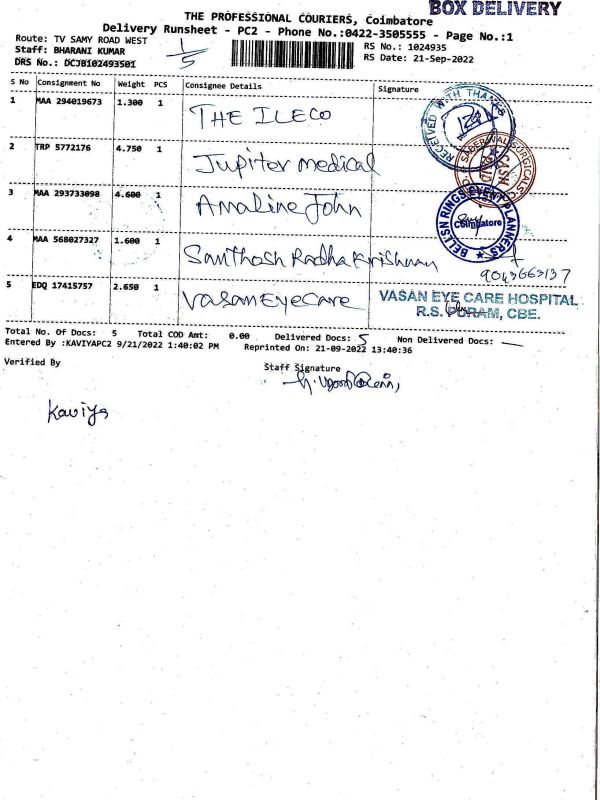 BOX DELIVERY
THE PROFESSIONAL COURIERS, Coimbatore
Delivery Runsheet - PC2 - Phone No.:0422-3505555 - Page No.:1
Route: TV SAMY ROAD WEST
Staff: BHARANI KUMAR
DRS No.: DCJB102493501
1/5
RS No.: 1024935
RS Date: 21-Sep-2022
S No Consignment No Weight PCS Consignee Details Signature
1 MAA 294019673 1.300 1 THE ILECO
RECEIVED WITH THANKS
2 TRP 5772176 4.750 1 Jupiter medical
CASH
3 MAA 293733098 4.600 1 Amaline John
BELL'SN RINGS EVENT PLANNERS
Coimbatore
4 MAA 568027327 1.600 1 Santhosh Radha Krishnan
9043663137
5 EDQ 17415757 2.650 1 VasanEyeCare
VASAN EYE CARE HOSPITAL
R.S. PURAM, CBE.
Total No. Of Docs: 5 Total COD Amt: 0.00 Delivered Docs: 5 Non Delivered Docs: —
Entered By :KAVIYAPC2 9/21/2022 1:40:02 PM Reprinted On: 21-09-2022 13:40:36
Verified By
Staff Signature
Kaviya